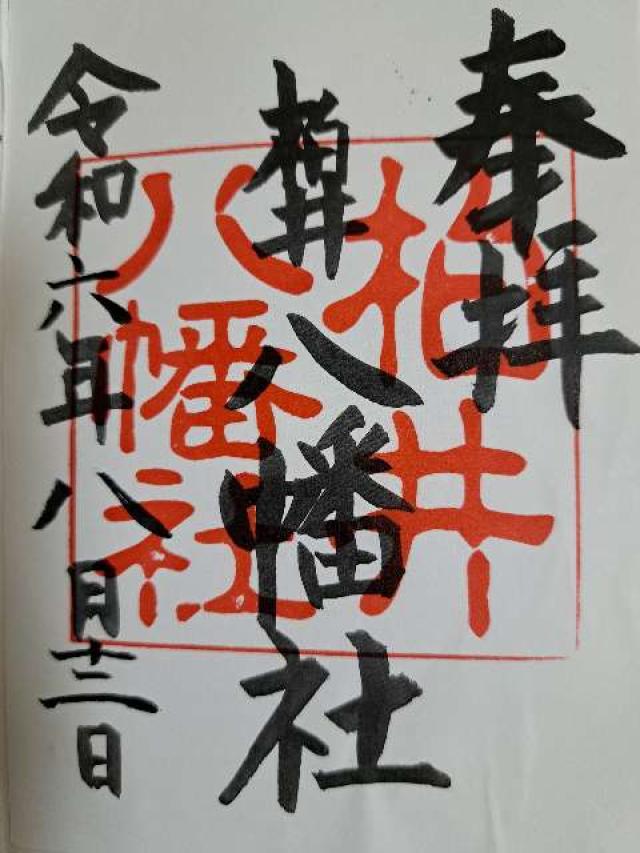 奉拝
柏井八幡社
令和六年八月十二日
柏井
八幡社